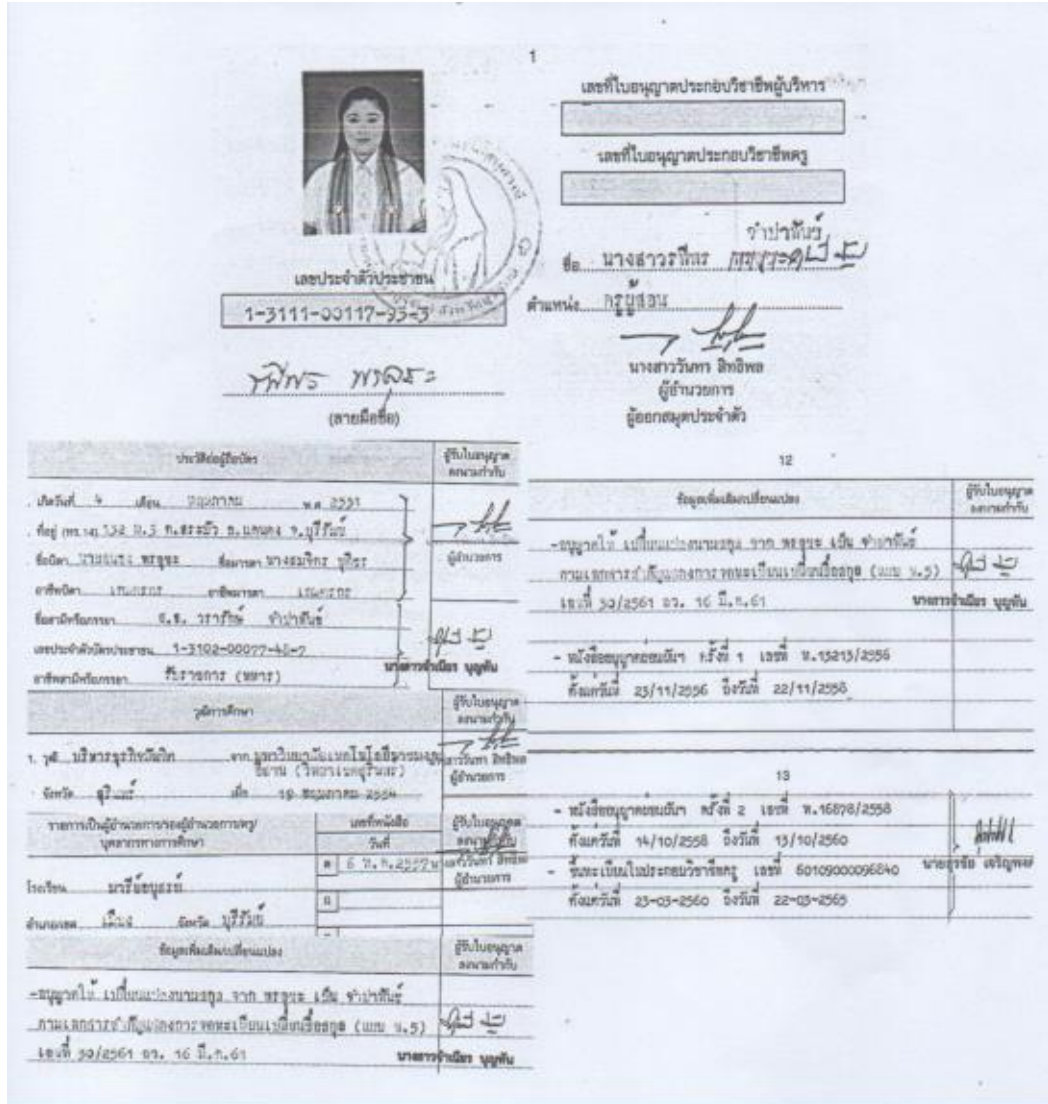 1
เลขที่ใบอนุญาตประกอบวิชาชีพผู้บริหาร
เลขที่ใบอนุญาตประกอบวิชาชีพครู
จำปาพันธ์
ชื่อ นางสาวรพีพร
ตำแหน่ง ครูผู้สอน
เลขประจำตัวประชาชน
1-3111-00117-93-3
(ลายมือชื่อ)
นางสาววันทา สิทธิพล
ผู้อำนวยการ
ผู้ออกสมุดประจำตัว
ประวัติย่อผู้ถือบัตร
ผู้รับใบอนุญาต
ลงนามกำกับ
เกิดวันที่ 4 เดือน พฤษภาคม พ.ศ 2531
ที่อยู่ (ทร.14) 132 ม.3 ต.สระบัว อ.แคนดง จ.บุรีรัมย์
ผู้อำนวยการ
ชื่อบิดา ชื่อมารดา
อาชีพบิดา เกษตรกร อาชีพมารดา เกษตรกร
ชื่อสามีหรือภรรยา จำปาพันธ์
เลขประจำตัวบัตรประชาชน 1-3102-00077-48-7
อาชีพสามีหรือภรรยา รับราชการ (ทหาร)
นางสาวจำเนียร บุญทัน
วุฒิการศึกษา
ผู้รับใบอนุญาต
ลงนามกำกับ
1. วุฒิ บริหารธุรกิจบัณฑิต จาก มหาวิทยาลัยเทคโนโลยีราชมงคล
อีสาน (วิทยาเขตสุรินทร์)
ผู้อำนวยการ
จังหวัด สุรินทร์ เมื่อ 19 พฤษภาคม 2554
รายการเป็นผู้อำนวยการ/รองผู้อำนวยการ/ครู/
บุคลากรทางการศึกษา
เลขที่หนังสือ
วันที่
ผู้รับใบอนุญาต
ลงนามกำกับ
ผู้อำนวยการ
โรงเรียน มารีย์อนุสรณ์
อำเภอ/เขต เมือง จังหวัด บุรีรัมย์
ข้อมูลเพิ่มเติม/เปลี่ยนแปลง
ผู้รับใบอนุญาต
ลงนามกำกับ
-อนุญาตให้ เปลี่ยนแปลงนามสกุล จาก พรลุระ เป็น จำปาพันธ์
ตามเอกสารสำคัญแสดงการจดทะเบียนเปลี่ยนชื่อสกุล (แบบ ช.5)
เลขที่ 30/2561 ลว. 16 มี.ค.61
นางสาวจำเนียร บุญทัน
12
ข้อมูลเพิ่มเติม/เปลี่ยนแปลง
ผู้รับใบอนุญาต
ลงนามกำกับ
-อนุญาตให้ เปลี่ยนแปลงนามสกุล จาก พรลุระ เป็น จำปาพันธ์
ตามเอกสารสำคัญแสดงการจดทะเบียนเปลี่ยนชื่อสกุล (แบบ ช.5)
เลขที่ 30/2561 ลว. 16 มี.ค.61
นางสาวจำเนียร บุญทัน
- หนังสืออนุญาตผ่อนผันฯ ครั้งที่ 1 เลขที่ ห.13213/2556
ตั้งแต่วันที่ 23/11/2556 ถึงวันที่ 22/11/2558
13
- หนังสืออนุญาตผ่อนผันฯ ครั้งที่ 2 เลขที่ ห.16878/2558
ตั้งแต่วันที่ 14/10/2558 ถึงวันที่ 13/10/2560
- ขึ้นทะเบียนใบประกอบวิชาชีพครู เลขที่ 60109000096840
ตั้งแต่วันที่ 23-03-2560 ถึงวันที่ 22-03-2565